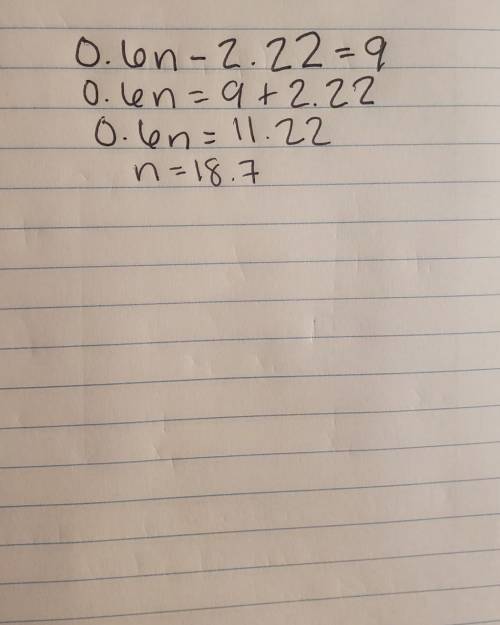 0.6n - 2.22 = 9
0.6n = 9 + 2.22
0.6n = 11.22
n = 18.7